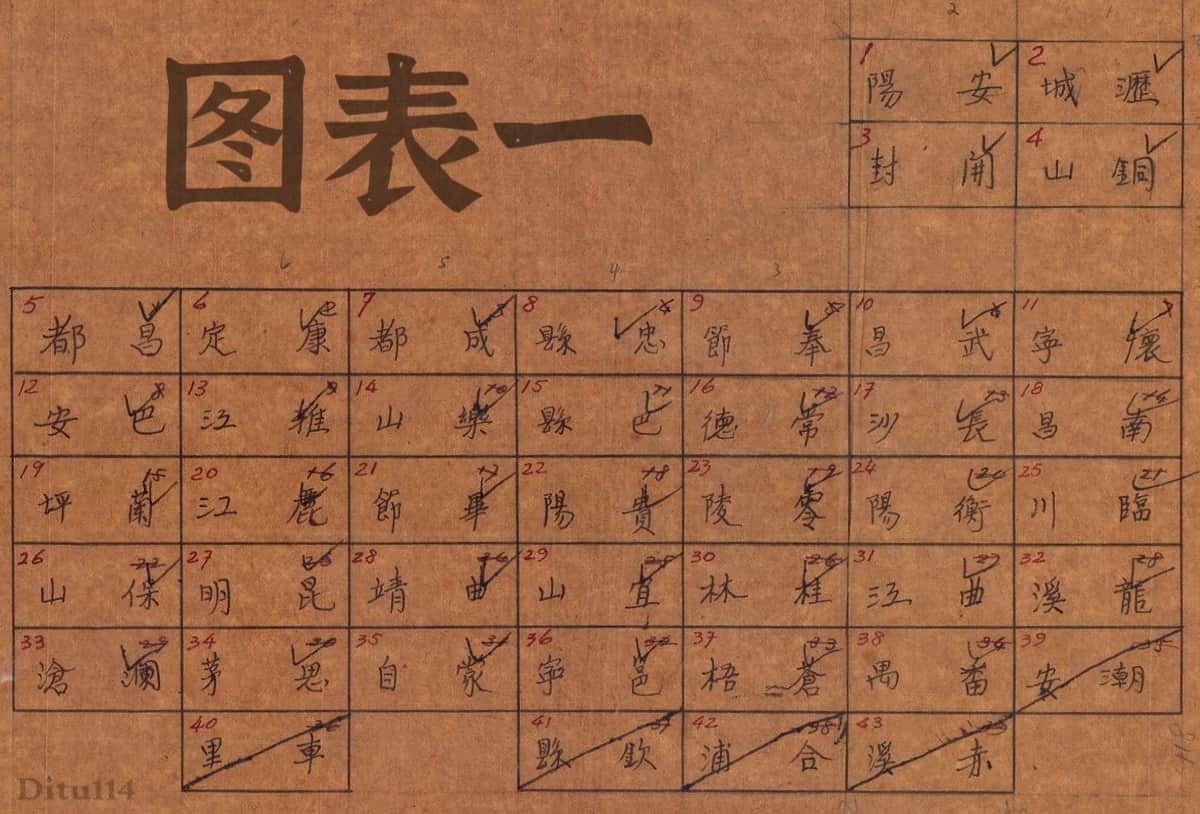 图表一
1 安陽
2 瀝城
3 開封
4 銅山
5 昌都
6 康定
7 成都
8 忠縣
9 奉節
10 武昌
11 懷寧
12 巴安
13 雅江
14 樂山
15 巴縣
16 常德
17 長沙
18 南昌
19 蘭坪
20 麗江
21 畢節
22 貴陽
23 零陵
24 衡陽
25 臨川
26 保山
27 昆明
28 曲靖
29 宜山
30 桂林
31 曲江
32 龍溪
33 瀾滄
34 思茅
35 蒙自
36 邕寧
37 蒼梧
38 番禺
39 潮安
40 車里
41 欽縣
42 合浦
43 赤溪
Ditu114